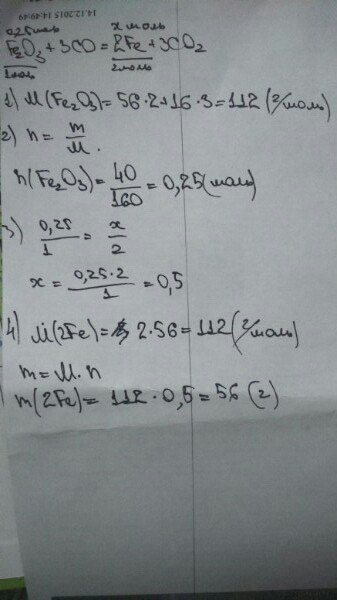 14.12.2015 14:49:49
0,25моль x моль
Fe₂O₃ + 3CO = 2Fe + 3CO₂
1моль 2моль
1) M(Fe₂O₃) = 56·2+16·3 = 112 (г/моль)
2) n = m/M.
n(Fe₂O₃) = 40/160 = 0,25(моль)
3) 0,25/1 = x/2
x = 0,25·2/1 = 0,5
4) M(2Fe) = 2·56 = 112 (г/моль)
m = M·n
m(2Fe) = 112·0,5 = 56 (г)